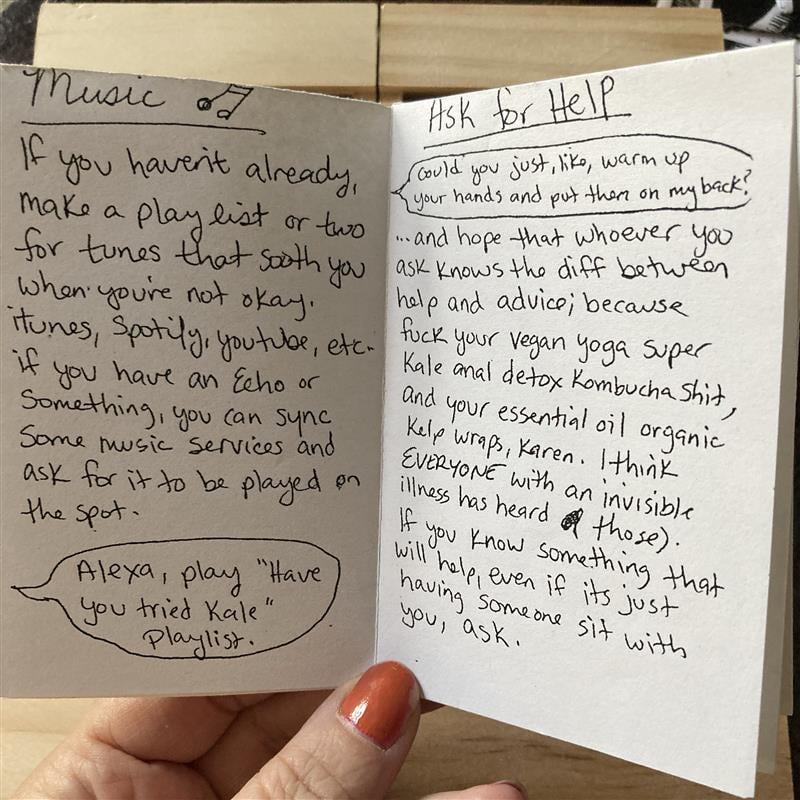 Music
If you haven't already,
make a playlist or two
for tunes that sooth you
when you're not okay.
itunes, Spotify, youtube, etc.
if you have an Echo or
Something, you can sync
Some music services and
ask for it to be played on
the spot.
Alexa, play "Have
you tried Kale"
Playlist.
Ask for Help
Could you just, like, warm up
your hands and put them on my back?
...and hope that whoever you
ask knows the diff between
help and advice; because
fuck your vegan yoga super
Kale anal detox Kombucha Shit,
and your essential oil organic
Kelp wraps, Karen. I think
EVERYONE with an invisible
illness has heard those).
If you know something that
will help, even if its just
having someone sit with
you, ask.